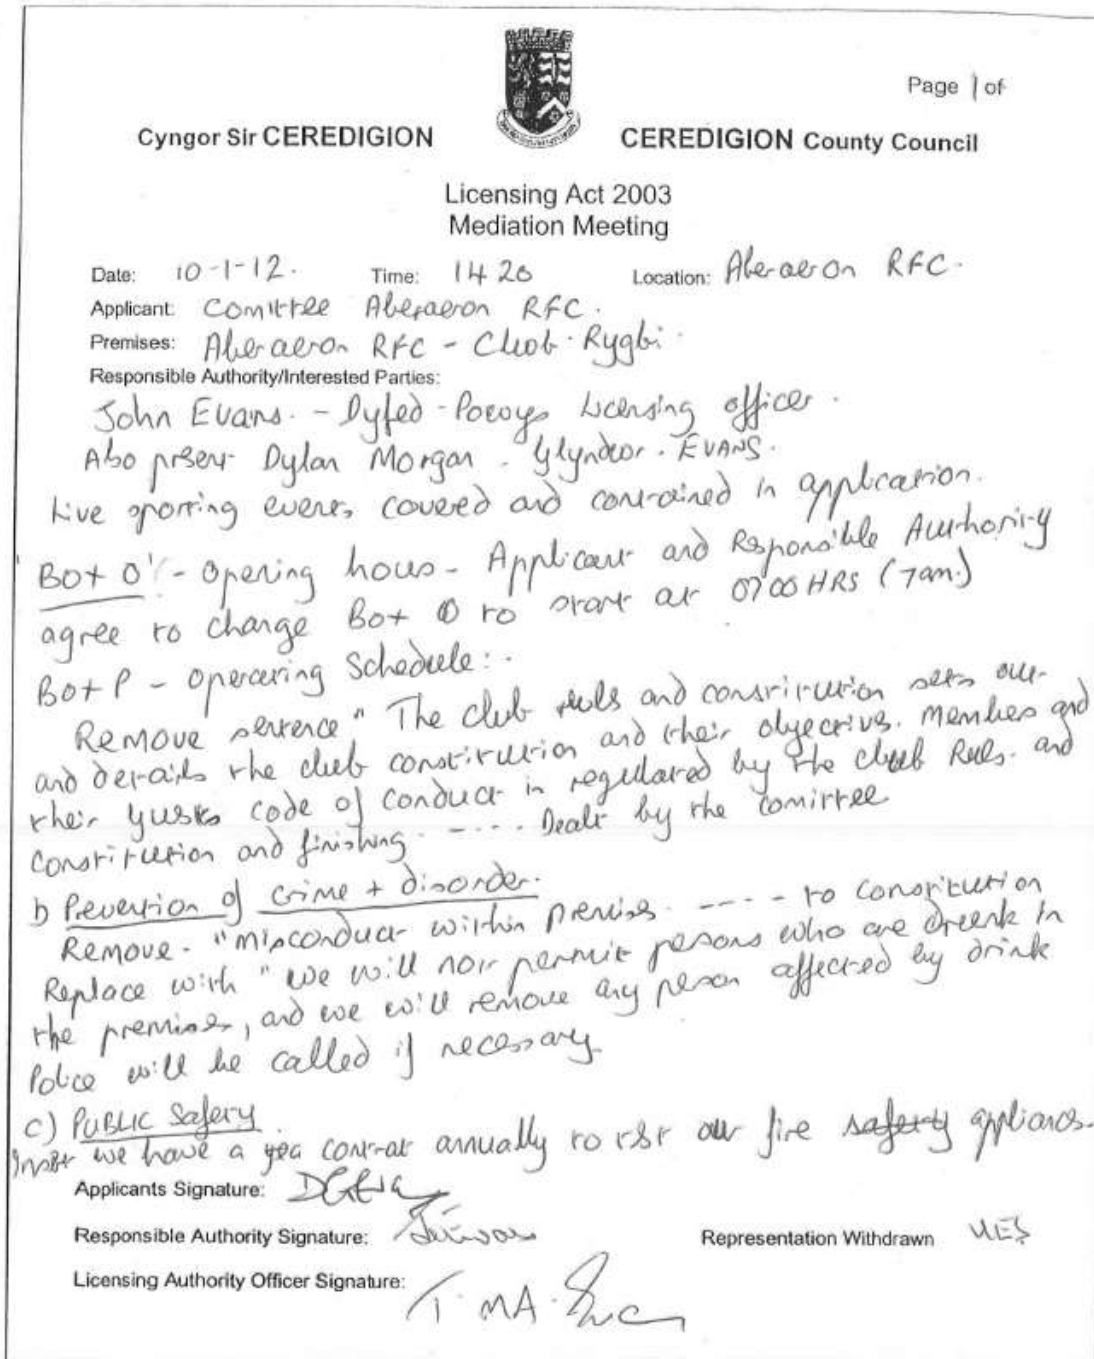 Page 1 of
Cyngor Sir CEREDIGION CEREDIGION County Council
Licensing Act 2003
Mediation Meeting
Date: 10-1-12. Time: 14 20 Location: Aberaeron RFC.
Applicant: Comittee Aberaeron RFC.
Premises: Aberaeron RFC - Clwb Rygbi.
Responsible Authority/Interested Parties:
John Evans. - Dyfed-Powys Licensing officer.
Also present Dylan Morgan. Glyndwr. EVANS.
Live sporting events covered and contained in application.
Box O' - Opening hours - Applicant and Responsible Authority
agree to change Box O to start at 0700 HRS (7am.)
Box P - Operating Schedule:.
Remove sentence "The club ruls and constitution sets out
and details the club constitution and their objectives. Members and
their guests code of conduct is regulated by the club Rules. and
constitution and finishing .---- Dealt by the comittee
b Prevention of crime + disorder.
Remove - "misconduct within premises. ---- to constitution
Replace with "we will not permit persons who are drunk in
the premises, and we will remove any person affected by drink
Police will be called if necessary.
c) PUBLIC Safety
Insert we have a contract annually to test our fire safety appliances.
Applicants Signature:
Responsible Authority Signature: J Evans Representation Withdrawn YES
Licensing Authority Officer Signature: